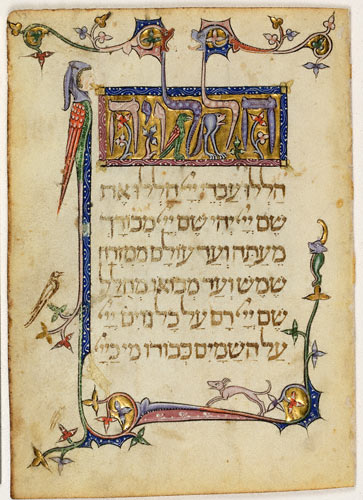 הללויה
הללו עבדי יי הללו את
שם יי יהי שם יי מבורך
מעתה ועד עולם ממזרח
שמש ועד מבואו מהלל
שם יי רם על כל גוים יי
על השמים כבודו מי כיי